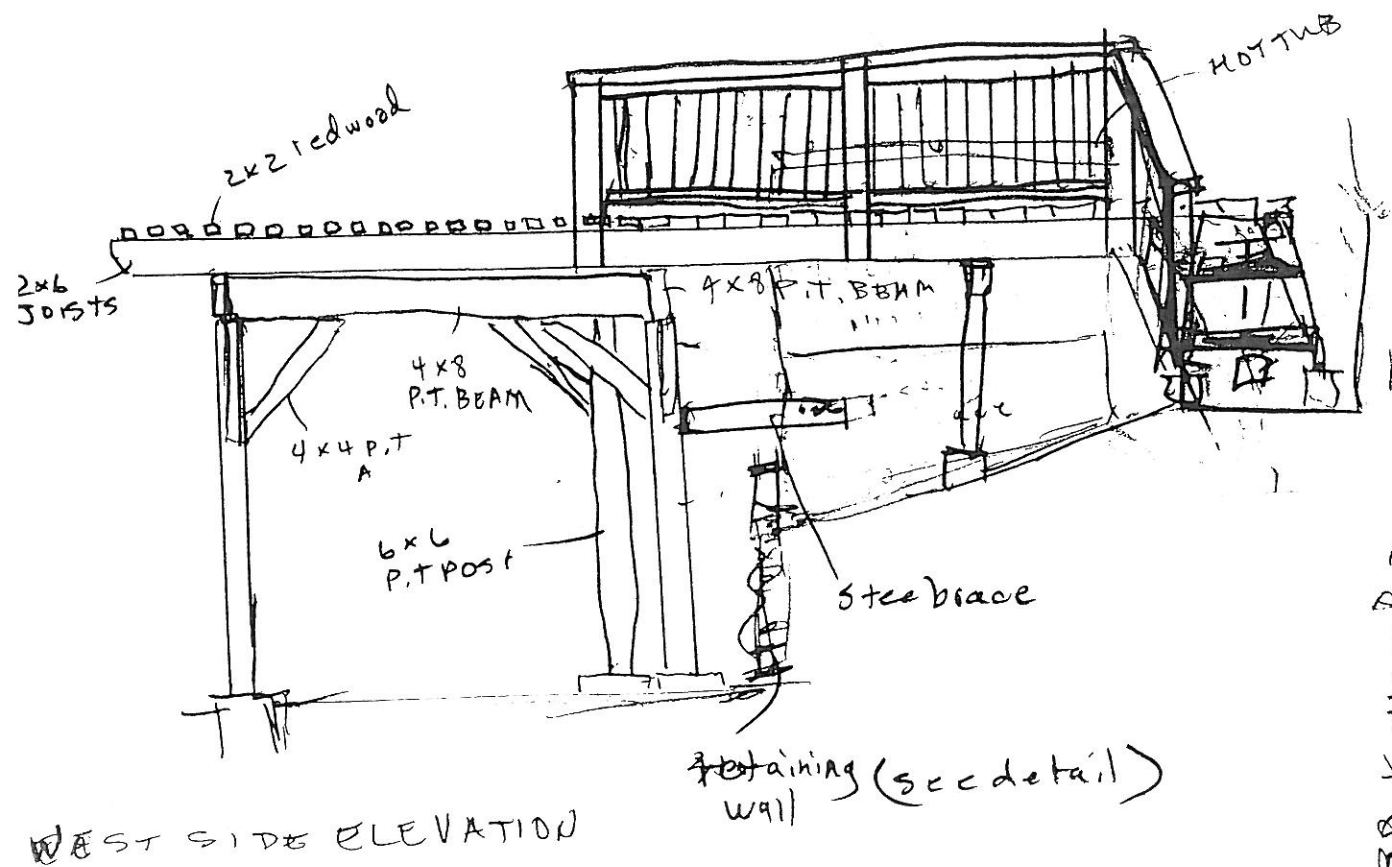 HOT TUB
2x2 redwood
2x6
JOISTS
4x8 P.T. BEAM
4x8
P.T. BEAM
4x4 P.T
A
6x6
P.T POST
Stee brace
retaining (see detail)
wall
WEST SIDE ELEVATION